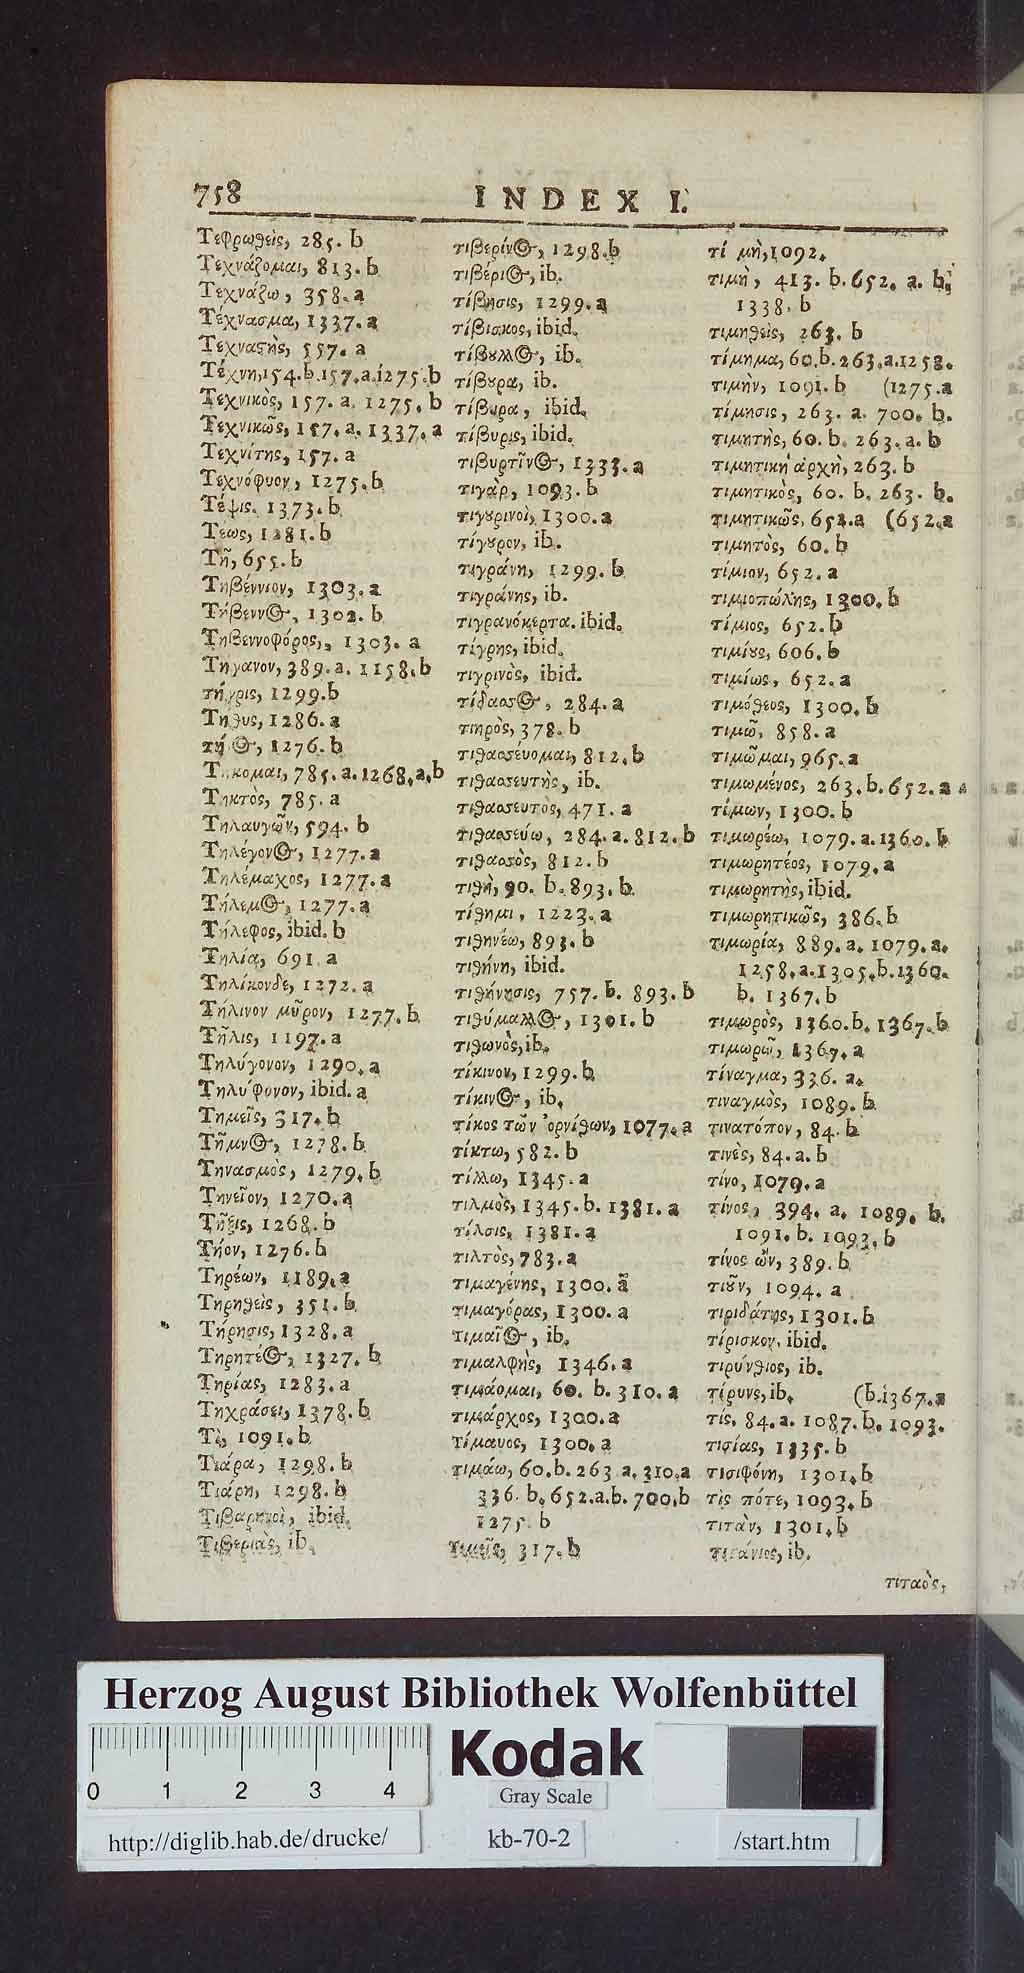 758 INDEX I.
Τεφρωθεὶς, 285. b
Τεχνάζομαι, 813. b
Τεχνάζω, 358. a
Τέχνασμα, 1337. a
Τεχναϛὴς, 557. a
Τέχνη, 154. b. 157. a. 1275. b
Τεχνικὸς, 157. a. 1275. b
Τεχνικῶς, 157. a. 1337. a
Τεχνίτης, 157. a
Τεχνόφυον, 1275. b
Τέψις. 1373. b
Τέως, 1281. b
Τῆ, 655. b
Τηβέννιον, 1303. a
Τήβεννος, 1302. b
Τηβεννοφόρος, 1303. a
Τήγανον, 389. a. 1158. b
τήγρις, 1299. b
Τηθυς, 1286. a
1276. b
Τήκομαι, 785. a. 1268. a. b
Τηκτὸς, 785. a
Τηλαυγῶν, 594. b
Τηλέγονος, 1277. a
Τηλέμαχος, 1277. a
Τήλεμος, 1277. a
Τήλεφος, ibid. b
Τηλία, 691. a
Τηλίκονδε, 1272. a
Τήλινον μῦρον, 1277. b
Τῆλις, 1197. a
Τηλύγονον, 1290. a
Τηλύφονον, ibid. a
Τημεῖς, 317. b
Τῆμνος, 1278. b
Τηνασμὸς, 1279. b
Τηνεῖον, 1270. a
Τῆξις, 1268. b
Τήον, 1276. b
Τηρέων, 1189. a
Τηρηθεὶς, 351. b
Τήρησις, 1328. a
Τηρητέος, 1327. b
Τηρίας, 1283. a
Τηχράσει, 1378. b
Τὶ, 1091. b
Τιάρα, 1298. b
Τιάρη, 1298. b
Τιβαρηνοὶ, ibid.
Τιβεριὰς, ib.
τιβερίνος, 1298. b
τιβέριος, ib.
τίβησις, 1299. a
τίβισκος, ibid.
τίβȣλλος, ib.
τίβȣρα, ib.
τίβυρα, ibid.
τίβυρις, ibid.
τιβυρτῖνος, 1333. a
τιγὰρ, 1093. b
τιγȣρινοὶ, 1300. a
τίγȣρον, ib.
τιγράνη, 1299. b
τιγράνης, ib.
τιγρανόκερτα. ibid.
τίγρης, ibid.
τιγρινὸς, ibid.
τίδασος, 284. a
τιηρὸς, 378. b
τιθασεύομαι, 812. b
τιθασευτὴς, ib.
τιθασευτὸς, 471. a
τιθασεύω, 284. a. 812. b
τιθασὸς, 812. b
τιθὴ, 90. b. 893. b
τίθημι, 1223. a
τιθηνέω, 893. b
τιθήνη, ibid.
τιθήνησις, 757. b. 893. b
τιθύμαλλος, 1301. b
τιθωνὸς, ib.
τίκινον, 1299. b
τίκινος, ib.
τίκος τῶν ὀρνίθων, 1077. a
τίκτω, 582. b
τίλλω, 1345. a
τιλμὸς, 1345. b. 1381. a
τίλσις, 1381. a
τιλτὸς, 783. a
τιμαγένης, 1300. a
τιμαγόρας, 1300. a
τιμαῖος, ib.
τιμαλφὴς, 1346. a
τιμάομαι, 60. b. 310. a
τιμάρχος, 1300. a
τίμαυος, 1300. a
τιμάω, 60. b. 263. a. 310. a
336. b. 652. a. b. 700. b
1275. b
τιμεῖς, 317. b
τί μὴ, 1092.
τιμὴ, 413. b. 652. a. b.
1338. b
τιμηθεὶς, 263. b
τίμημα, 60. b. 263. a. 1258.
τιμὴν, 1091. b (1275. a
τίμησις, 263. a. 700. b.
τιμητὴς, 60. b. 263. a. b
τιμητικὴ ἀρχὴ, 263. b
τιμητικὸς, 60. b. 263. b.
τιμητικῶς, 652. a (652. a
τιμητὸς, 60. b
τίμιον, 652. a
τιμιοπώλης, 1300. b
τίμιος, 652. b
τιμίȣς, 606. b
τιμίως, 652. a
τιμόθεος, 1300. b
τιμῶ, 858. a
τιμῶμαι, 965. a
τιμωμένος, 263. b. 652. a
τίμων, 1300. b
τιμωρέω, 1079. a. 1360. b
τιμωρητέος, 1079. a
τιμωρητὴς, ibid.
τιμωρητικῶς, 386. b
τιμωρία, 889. a. 1079. a.
1258. a. 1305. b. 1360.
b. 1367. b
τιμωρὸς, 1360. b. 1367. b
τιμωρῶ, 1367. a
τίναγμα, 336. a.
τιναγμὸς, 1089. b
τινατόπον, 84. b
τινὲς, 84. a. b
τίνο, 1079. a
τίνος, 394. a. 1089. b.
1091. b. 1093. b
τίνος ὢν, 389. b
τιοῦν, 1094. a
τιριδάτης, 1301. b
τίρισκον, ibid.
τιρύνθιος, ib.
τίρυνς, ib. (b. 1367. a
τίς, 84. a. 1087. b. 1093.
τισίας, 1335. b
τισιφόνη, 1301. b
τὶς πότε, 1093. b
τιτὰν, 1301. b
τιτάνιος, ib.
τιταὸς,
Herzog August Bibliothek Wolfenbüttel
0 1 2 3 4
Kodak
Gray Scale
http://diglib.hab.de/drucke/ kb-70-2 /start.htm